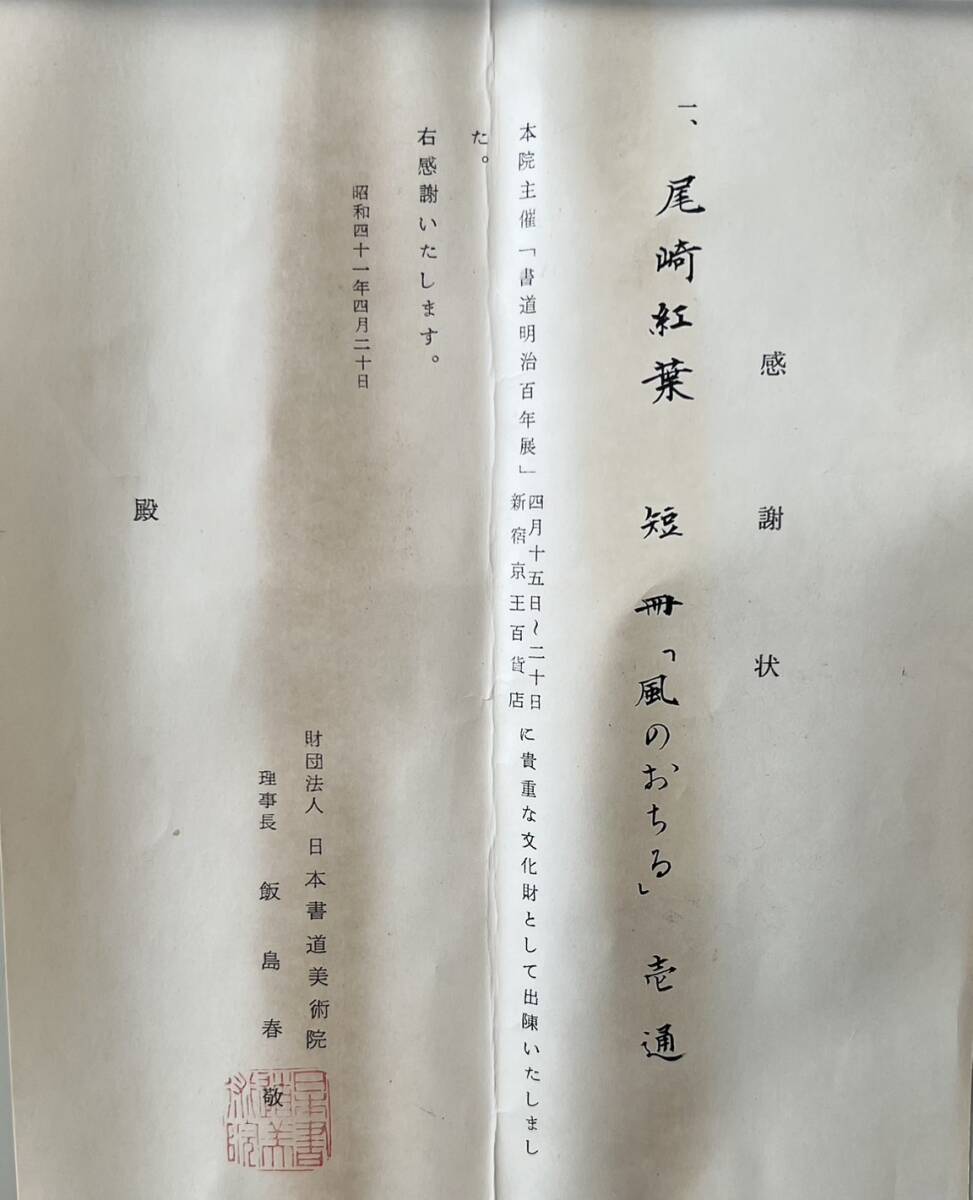 感謝状
一、尾崎紅葉 短冊「風のおちる」壱通
本院主催「書道明治百年展」四月十五日～二十日新宿京王百貨店に貴重な文化財として出陳いたしまし
た。
右感謝いたします。
昭和四十一年四月二十日
財団法人 日本書道美術院
理事長 飯島春敬
殿